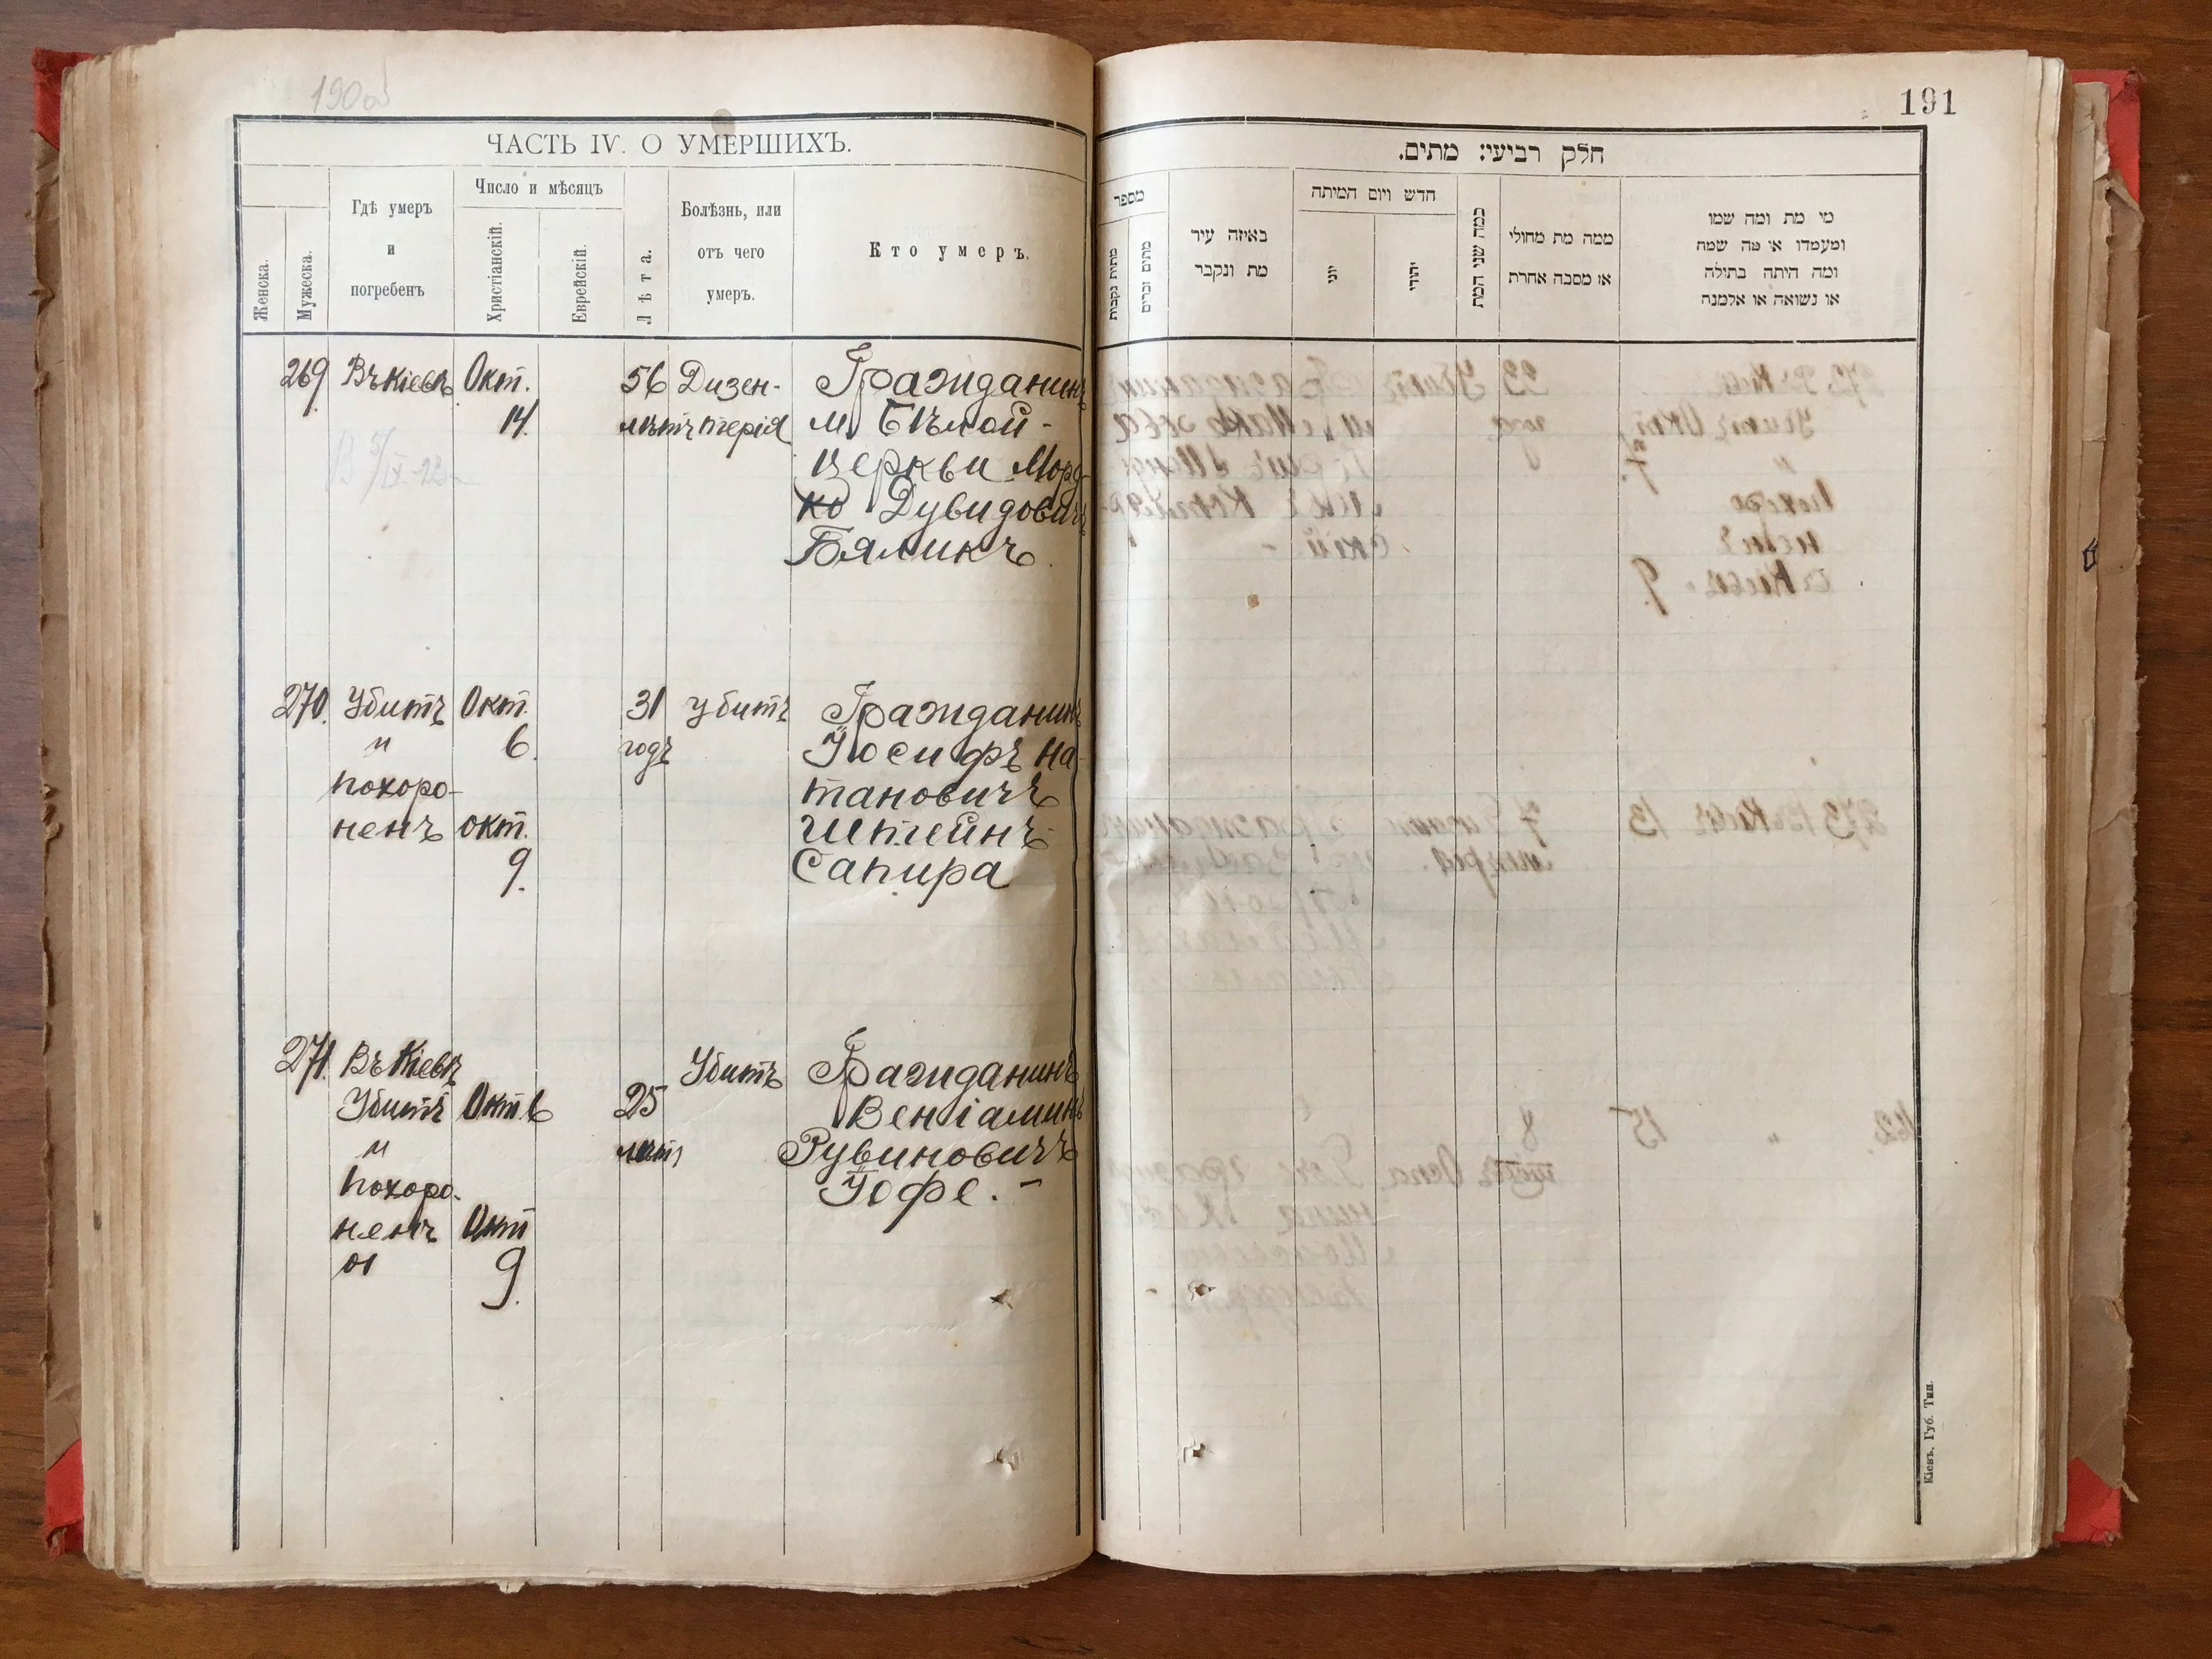 190об
191
ЧАСТЬ IV. О УМЕРШИХЪ.
Женска.
Мужеска.
Гдѣ умеръ
и
погребенъ
Число и мѣсяцъ
Христіанскій.
Еврейскій.
Лѣта.
Болѣзнь, или
отъ чего
умеръ.
Кто умеръ.
269
Въ Кіевѣ
Окт.
14.
56
лѣтъ
Дизен-
терія
Гражданинъ
м. Бѣлой-
Церкви Морд-
ко Дувидовичъ
Бяликъ
270.
Убитъ
и
похоро-
ненъ
Окт.
6.
окт.
9.
31
годъ
убитъ
Гражданинъ
Іосифъ На-
тановичъ
Штейнъ-
Сапира
271.
Въ Кіевѣ
Убитъ
и
похоро-
ненъ
Окт. 6
Окт
9.
25
лѣтъ
Убитъ
Гражданинъ
Веніаминъ
Рувиновичъ
Іофе. -
חלק רביעי: מתים.
מספר
מתות נקבות
מתים זכרים
באיזה עיר
מת ונקבר
חדש ויום המיתה
יוני
יהודי
כמה שני המת
ממה מת מחולי
או מסבה אחרת
מי מת ומה שמו
ומעמדו או מה שמה
ומה היתה בתולה
או נשואה או אלמנה
Кіевъ, Губ. Тип.